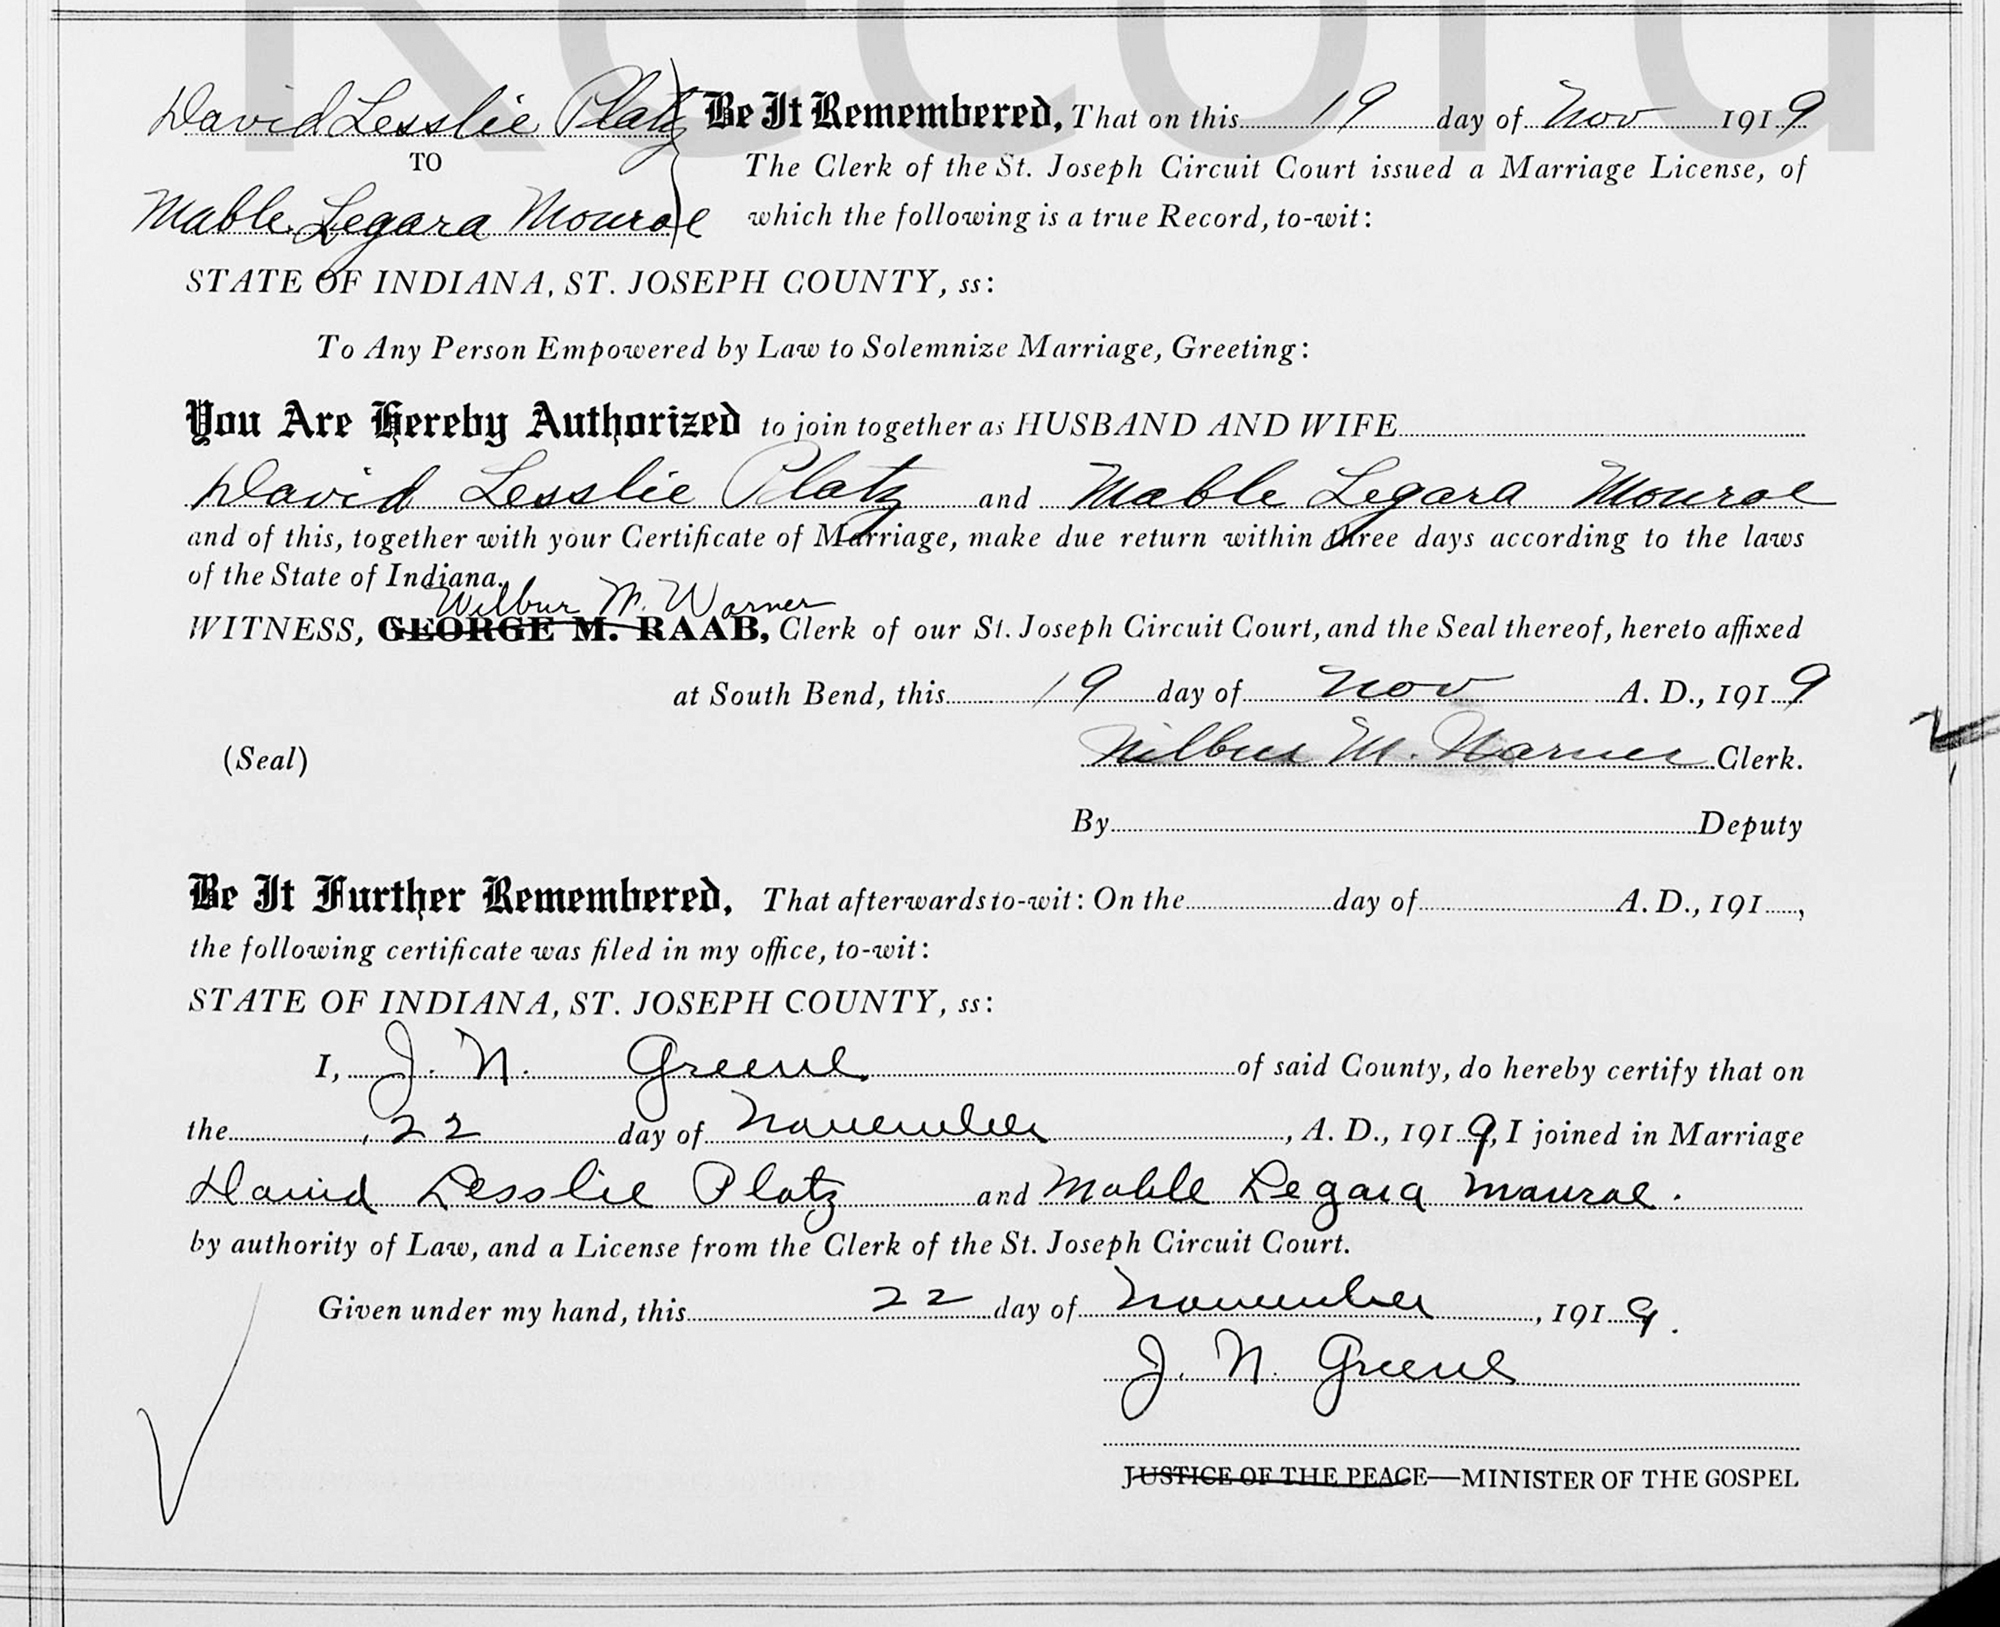 Record
David Lesslie Platz Be It Remembered, That on this 19 day of Nov 1919
TO The Clerk of the St. Joseph Circuit Court issued a Marriage License, of
Mable Legara Monroe which the following is a true Record, to-wit:
STATE OF INDIANA, ST. JOSEPH COUNTY, ss:
To Any Person Empowered by Law to Solemnize Marriage, Greeting:
You Are Hereby Authorized to join together as HUSBAND AND WIFE
David Lesslie Platz and Mable Legara Monroe
and of this, together with your Certificate of Marriage, make due return within three days according to the laws
of the State of Indiana.
Wilbur M. Warner
WITNESS, GEORGE M. RAAB, Clerk of our St. Joseph Circuit Court, and the Seal thereof, hereto affixed
at South Bend, this 19 day of Nov A. D., 1919
(Seal) Wilbur M. Warner Clerk.
By Deputy
Be It Further Remembered, That afterwards to-wit: On the day of A. D., 191 ,
the following certificate was filed in my office, to-wit:
STATE OF INDIANA, ST. JOSEPH COUNTY, ss:
I, J. N. Greene of said County, do hereby certify that on
the 22 day of November , A. D., 1919, I joined in Marriage
David Lesslie Platz and Mable Legara Monroe.
by authority of Law, and a License from the Clerk of the St. Joseph Circuit Court.
Given under my hand, this 22 day of November , 1919.
J. N. Greene
JUSTICE OF THE PEACE—MINISTER OF THE GOSPEL